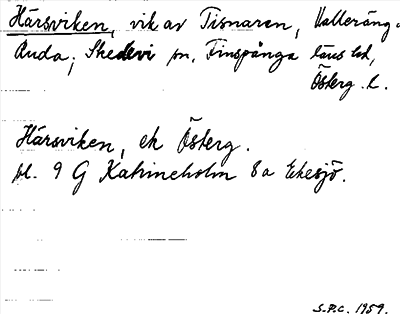 Härsviken, vik av Tisnaren, Valleräng-
Anda; Skedevi sn, Finspånga läns hd,
Österg. L.
Härsviken, ek Österg.
bl. 9 G Katrineholm 8a Ekesjö.
S.P.C. 1959.